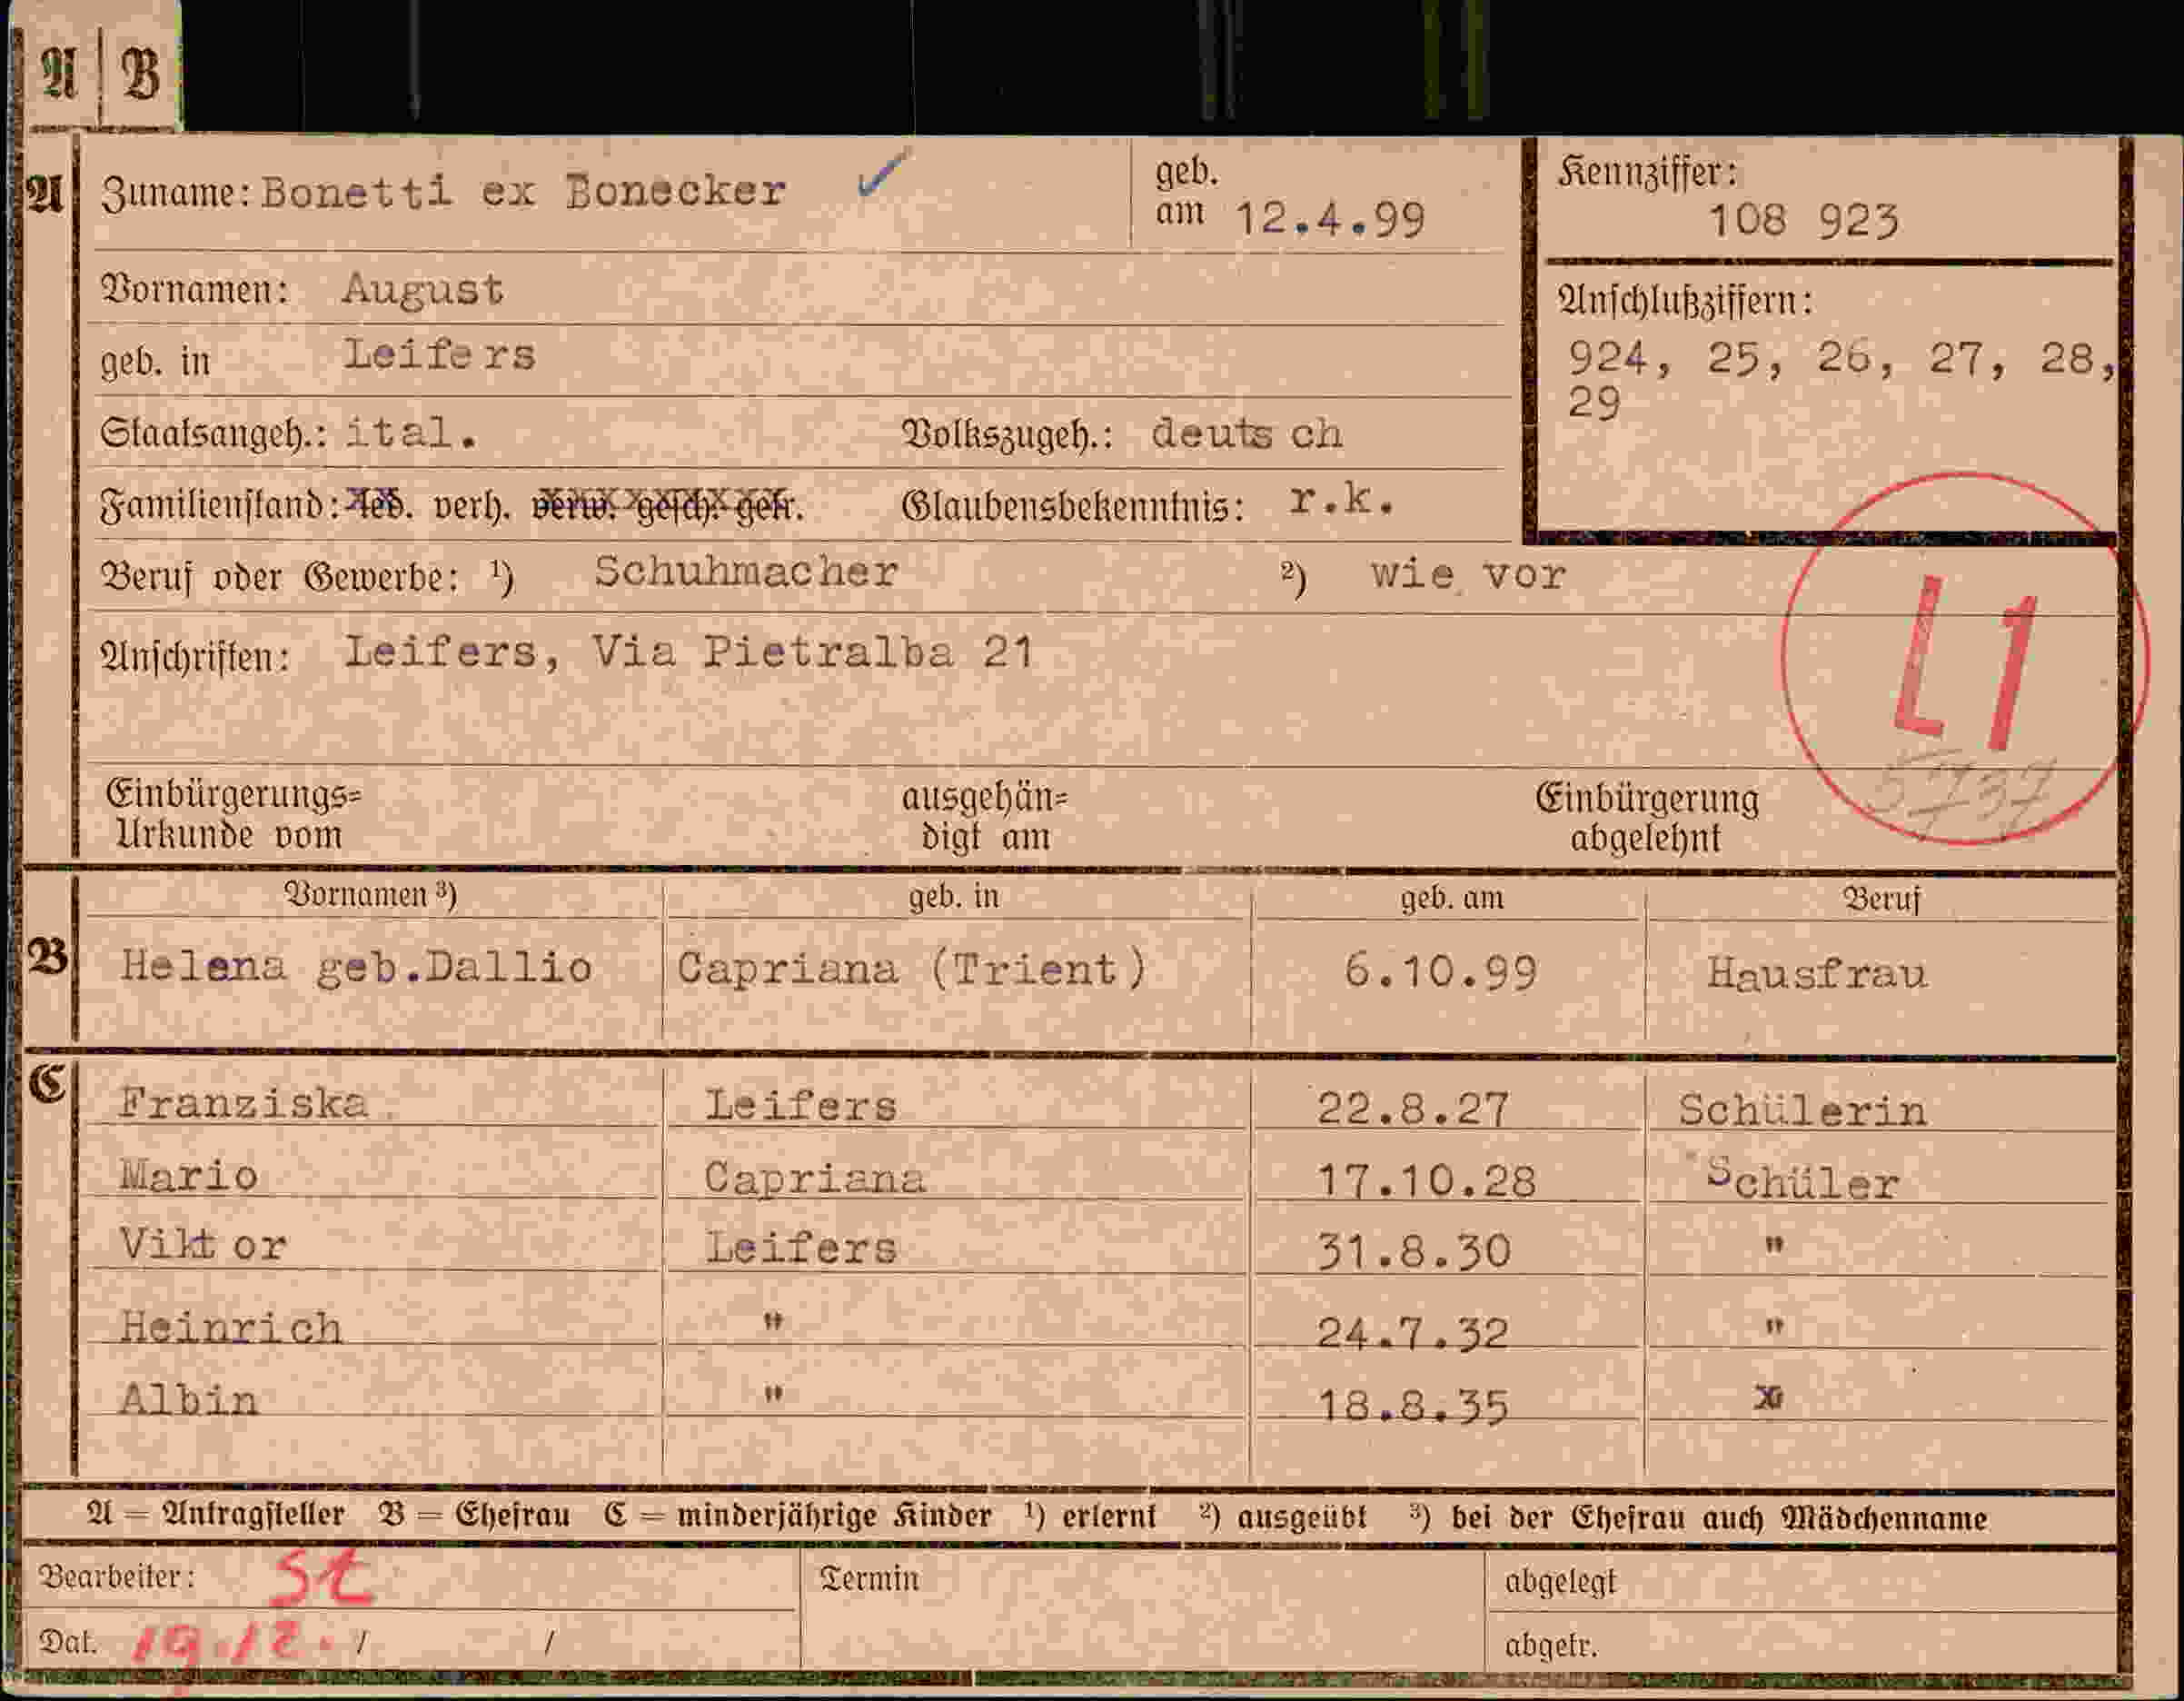 A | B
A Zuname: Bonetti ex Bonecker ✓ geb. am 12.4.99
Kennziffer: 108 923
Vornamen: August
Anschlußziffern: 924, 25, 26, 27, 28, 29
geb. in Leifers
Staatsangeh.: ital. Volkszugeh.: deutsch
Familienstand: led. verh. verw. gesch. getr. Glaubensbekenntnis: r.k.
Beruf oder Gewerbe: 1) Schuhmacher 2) wie vor
L1
Anschriften: Leifers, Via Pietralba 21
5737
Einbürgerungs= ausgehän= Einbürgerung
Urkunde vom digt am abgelehnt
Vornamen 3) geb. in geb. am Beruf
B Helena geb.Dallio Capriana (Trient) 6.10.99 Hausfrau
C Franziska Leifers 22.8.27 Schülerin
Mario Capriana 17.10.28 Schüler
Viktor Leifers 31.8.30 "
Heinrich " 24.7.32 "
Albin " 18.8.35
A = Antragsteller B = Ehefrau C = minderjährige Kinder 1) erlernt 2) ausgeübt 3) bei der Ehefrau auch Mädchenname
Bearbeiter: St Termin abgelegt
Dat. 19.12. / / abgetr.